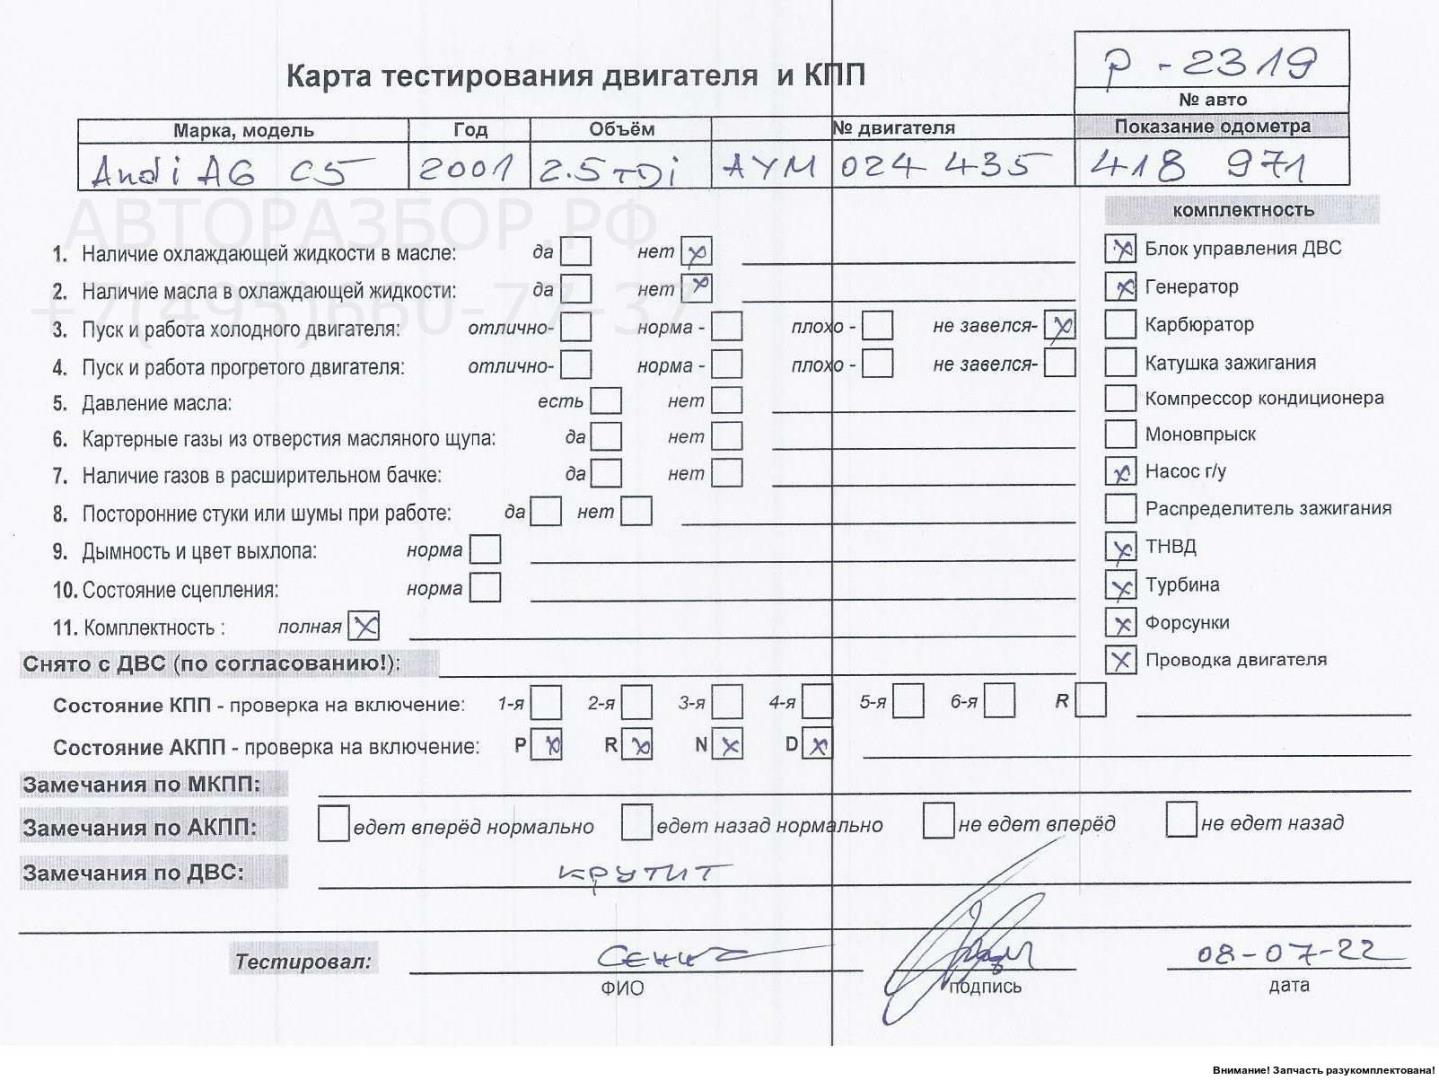 P - 2319
Карта тестирования двигателя и КПП
№ авто
Марка, модель Год Объём № двигателя Показание одометра
Audi A6 C5 2001 2.5 TDi AYM 024 435 418 971
АВТОРАЗБОР.РФ
комплектность
1. Наличие охлаждающей жидкости в масле: да нет x
x Блок управления ДВС
2. Наличие масла в охлаждающей жидкости: да нет x
x Генератор
+7(495)660-77-37
3. Пуск и работа холодного двигателя: отлично- норма - плохо - не завелся- x
Карбюратор
4. Пуск и работа прогретого двигателя: отлично- норма - плохо - не завелся-
Катушка зажигания
5. Давление масла: есть нет
Компрессор кондиционера
6. Картерные газы из отверстия масляного щупа: да нет
Моновпрыск
7. Наличие газов в расширительном бачке: да нет
x Насос г/у
8. Посторонние стуки или шумы при работе: да нет
Распределитель зажигания
9. Дымность и цвет выхлопа: норма
x ТНВД
10. Состояние сцепления: норма
x Турбина
11. Комплектность : полная x
x Форсунки
Снято с ДВС (по согласованию!):
x Проводка двигателя
Состояние КПП - проверка на включение: 1-я 2-я 3-я 4-я 5-я 6-я R
Состояние АКПП - проверка на включение: P x R x N x D x
Замечания по МКПП:
Замечания по АКПП: едет вперёд нормально едет назад нормально не едет вперёд не едет назад
Замечания по ДВС: крутит
Тестировал: 08-07-22
ФИО подпись дата
Внимание! Запчасть разукомплектована!